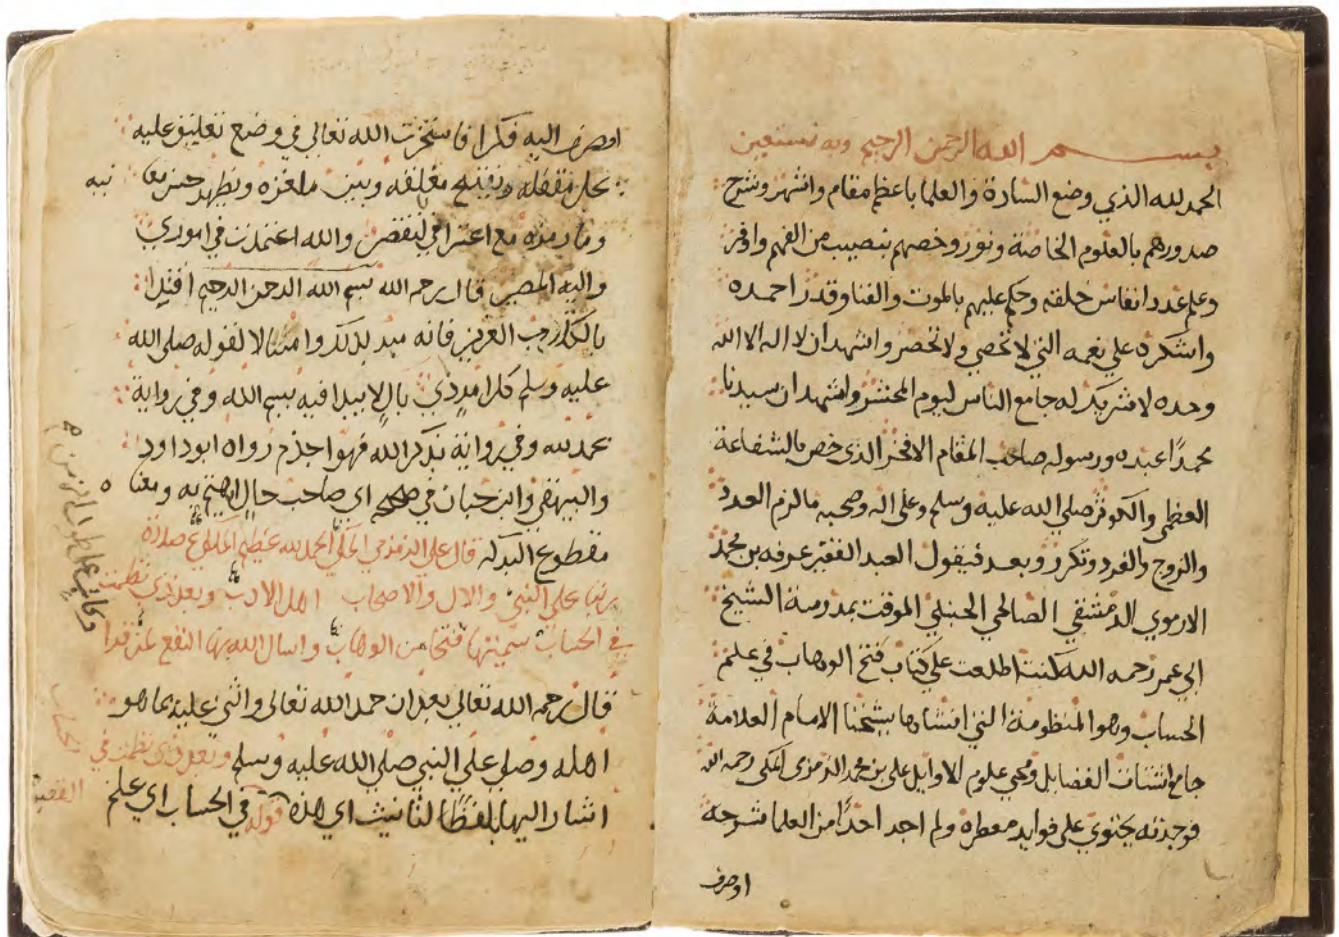 بسم الله الرحمن الرحيم وبه نستعين
الحمد لله الذي وضع السادة والعلما باعظم مقام واشهر وشرح
صدورهم بالعلوم الخاصة ونور وخصهم بنصيب من الفهم واوفر
وعلم عدد انفاس خلقه وحكم عليهم بالموت والفنا وقدر احمده
واشكره علي نعمه التي لا تحصي ولا تحصر واشهد ان لا اله الا الله
وحده لا شريك له جامع الناس ليوم المحشر واشهد ان سيدنا
محمدًا عبده ورسوله صاحب المقام الافخر الذى خص بالشفاعة
العظمي والكوثر صلي الله عليه وسلم وعلى اله وصحبه ما لزم العدد
والزوج والفرد وتكرر وبعد فيقول العبد الفقير عرفه بن محمد
الارموي الدمشقي الصالحي الحنبلي الموقت بمدرسة الشيخ
ابي عمر رحمه الله كنت اطلعت علي كتاب فتح الوهاب في علم
الحساب وهو المنظومة التي انشاها شيخنا الامام العلامة
جامع اشتات الفضايل ومحي علوم الاوايل على بن محمد الذمزمى المكى رحمه الله
فوجدته يحتوي على فوايد معطرة ولم اجد احدًا من العلما شرحه
اوصرف
اوصرف اليه فكرا فاستخرت الله تعالى في وضع تعليق عليه
يحل مقفله ويفتح مغلقه ويبين ملغزه ويظهر حسن معا نيه
وما رمزه مع اعترافي لتقصير والله اعتمدت في اموري
واليه المصير قال رحمه الله بسم الله الرحمن الرحيم اقتدا
بالكتاب العزيز فانه مبد بذلك وامتثالا لقوله صلى الله
عليه وسلم كل امر ذي بال لا يبدا فيه ببسم الله وفي رواية
بحمد لله وفي رواية بذكر الله فهو اجذم رواه ابو داود
والبيهقي وابن حبان في صحيحه اي صاحب حال يهتم به ومعنا ه
مقطوع البركه قال علي الزمزمي المكي الحمد لله عظيم صلاة
ربنا على النبي والال والاصحاب اهل الادب وبعد ذي نظمت
في الحساب سميتها فتحا من الوهاب واسال الله بها النفع لمن قرا
قال رحمه الله تعالى بعد ان حمد الله تعالى واثني عليه بما هو
اهله وصلي على النبي صلي الله عليه وسلم وبعد ذي نظمت في الحساب
اشار اليها بلفظ التانيث اي هذه قوله في الحساب اي علم